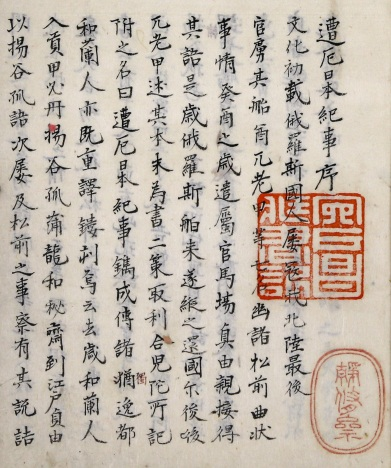 遭厄日本紀事序
文化初載俄羅斯國人屢寇我北陸最後
官虜其船酋兀老尹等七名幽諸松前曲状
事情癸酉之歳遣屬官馬場貞由親接得
其語是歳俄羅斯舶来遂縦之還國尓後彼
兀老甲述其本末為書二策取利合児陀所記
附之名曰遭厄日本紀事鐫成傳諸獨逸都
和蘭人亦既重譯鏤刻焉云去歳和蘭人
入貢甲必丹揚谷孤蒲龍和秘齋到江戸貞由
以揚谷孤語次屡及松前之事察有其説詰